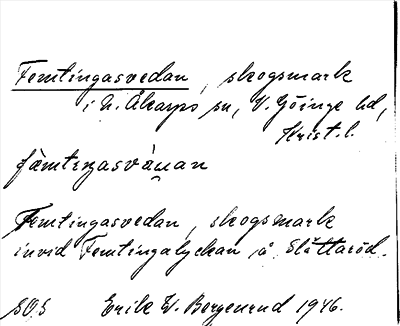 Femtingasvedan, skogsmark
i N. Åkarps sn, V. Göinge hd,
Krist. l.
fämtıŋasvá̯ɯan
Femtingasvedan, skogsmark
invid Femtingalyckan å Slättaröd.
SOS Erik W. Borgenrud 1946.